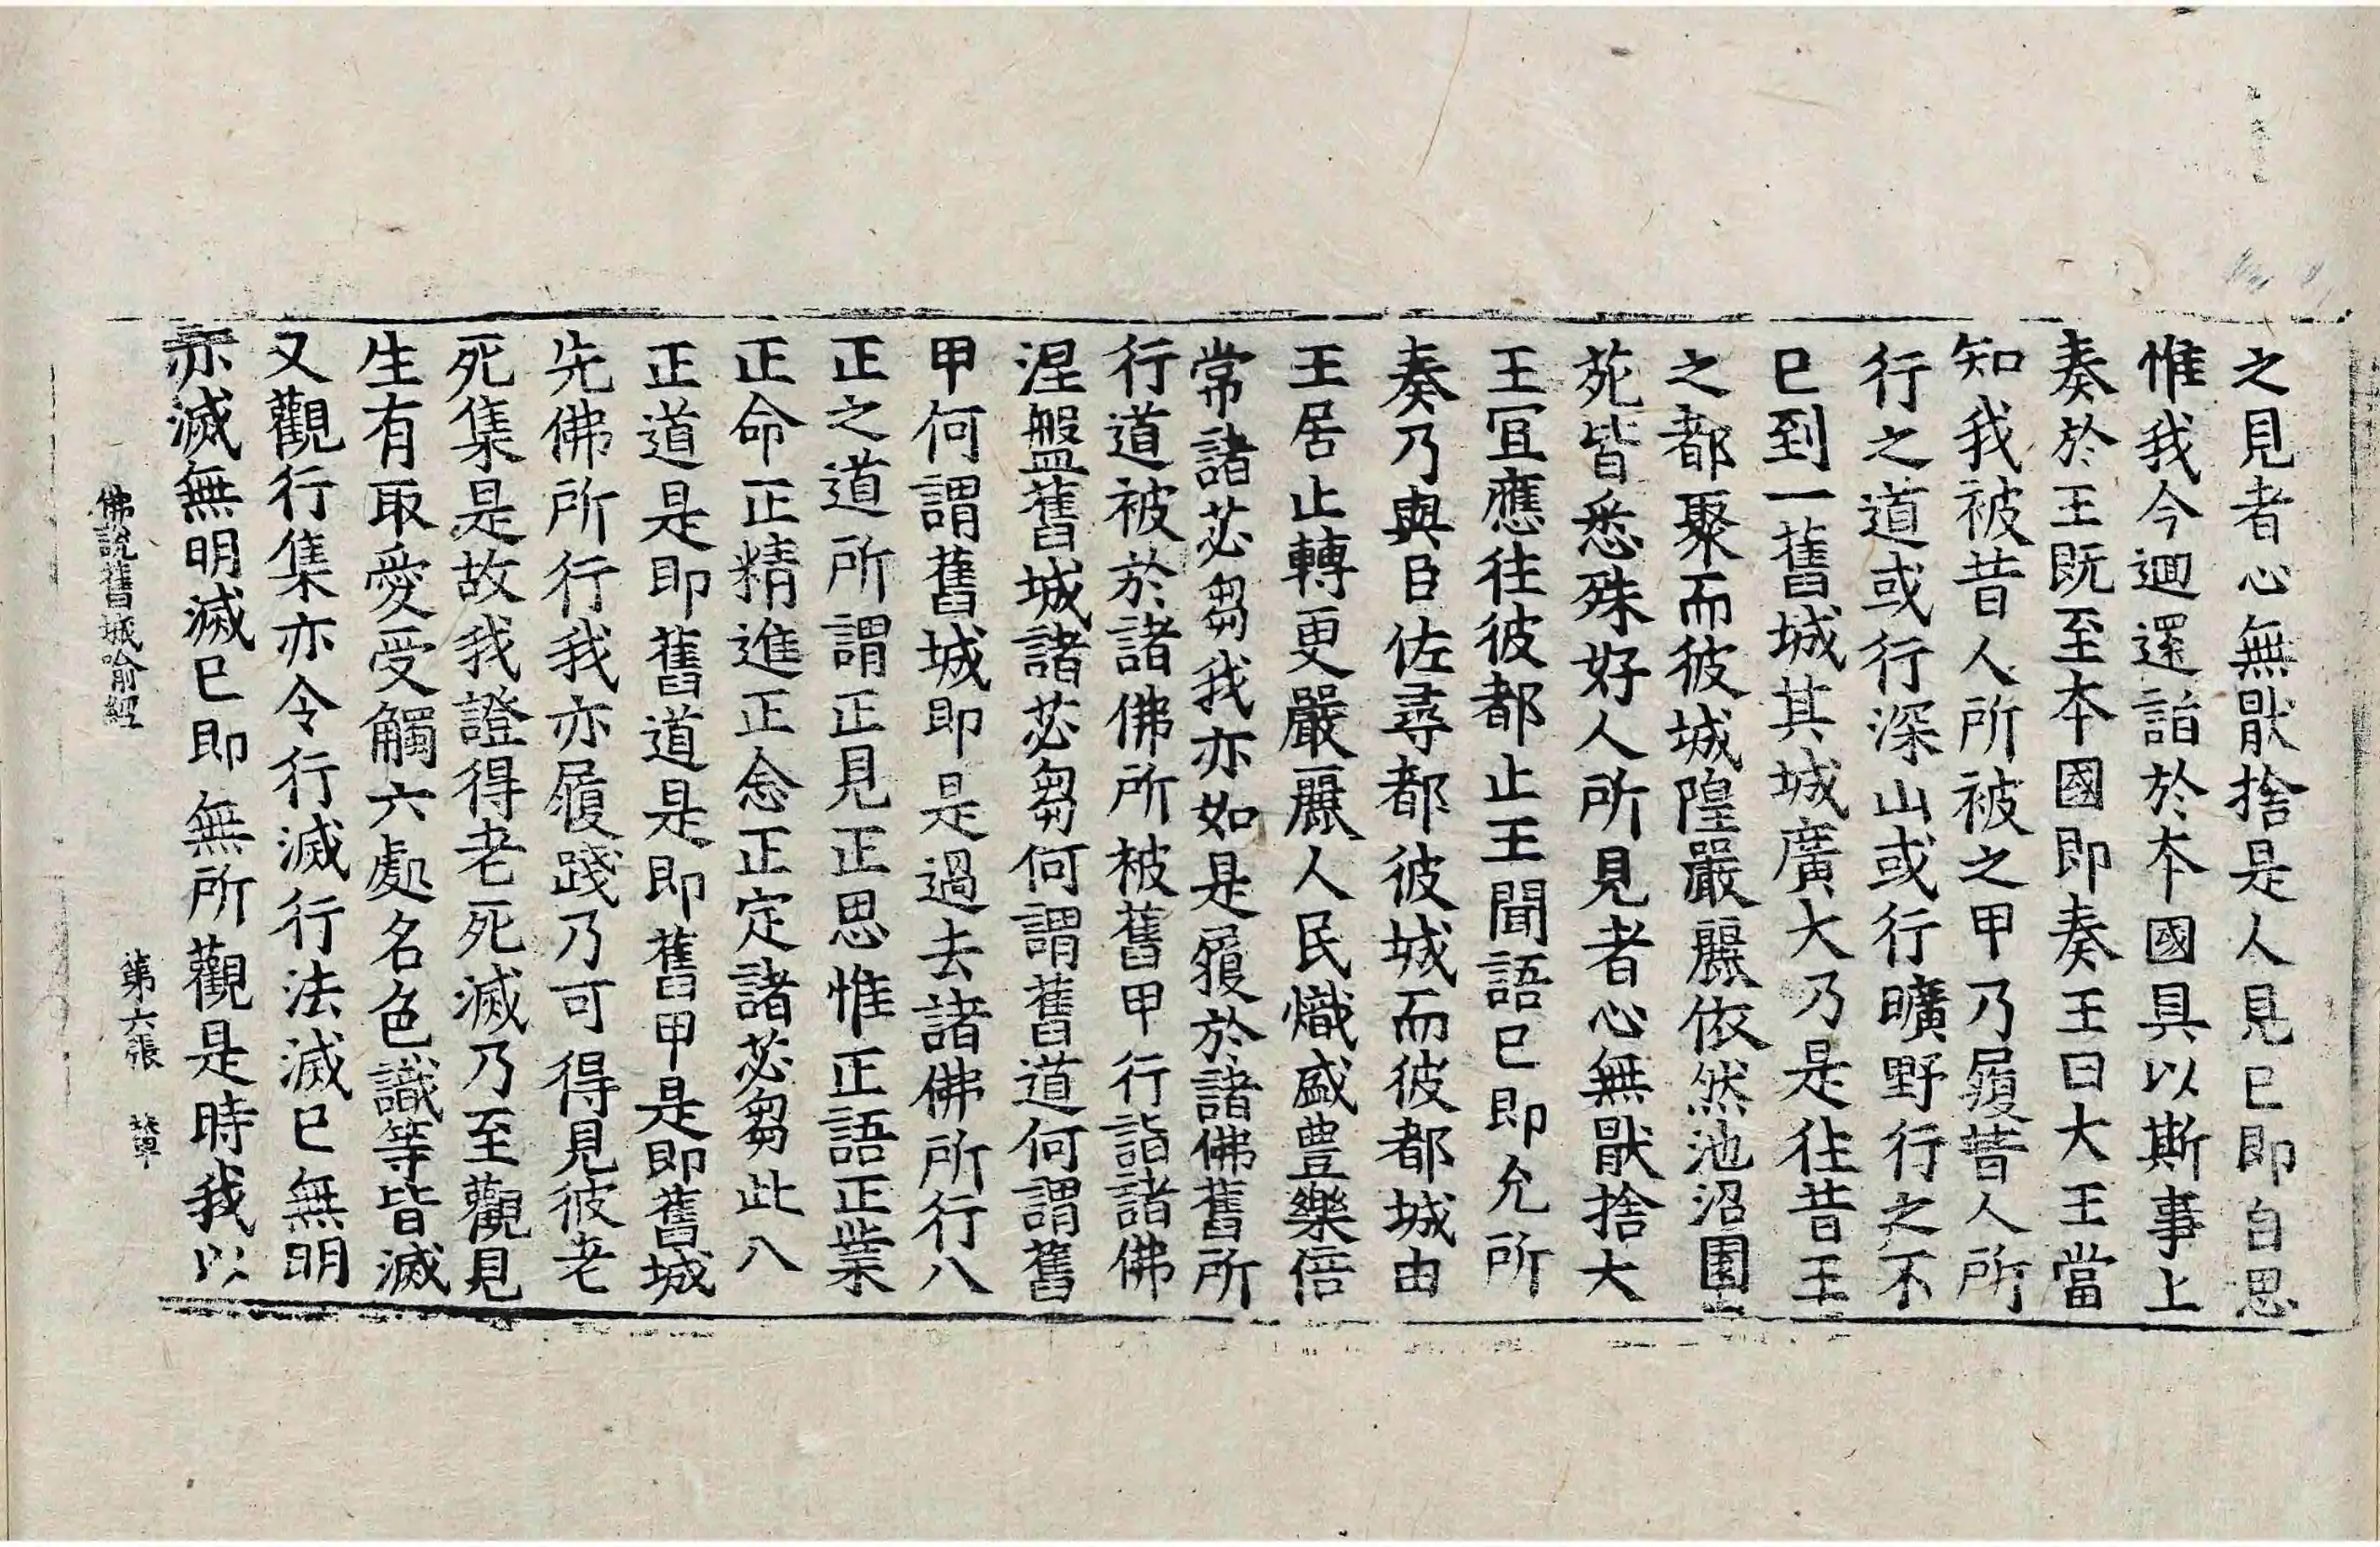 之見者心無猒捨是人見已即自思
惟我今迴還詣於本國具以斯事上
奏於王既至本國即奏王曰大王當
知我被昔人所被之甲乃履昔人所
行之道或行深山或行曠野行之不
已到一舊城其城廣大乃是往昔王
之都聚而彼城隍嚴麗依然池沼園
苑皆悉殊好人所見者心無猒捨大
王冝應往彼都止王聞語已即允所
奏乃與臣佐尋都彼城而彼都城由
王居止轉更嚴麗人民熾盛豊樂倍
常諸苾芻我亦如是履於諸佛舊所
行道被於諸佛所被舊甲行詣諸佛
涅盤舊城諸苾芻何謂舊道何謂舊
甲何謂舊城即是過去諸佛所行八
正之道所謂正見正思惟正語正業
正命正精進正念正定諸苾芻此八
正道是即舊道是即舊甲是即舊城
先佛所行我亦履踐乃可得見彼老
死集是故我證得老死滅乃至觀見
生有取愛受觸六處名色識等皆滅
又觀行集亦令行滅行法滅已無明
亦滅無明滅已即無所觀是時我以
佛說舊城喻經 第六張 輦